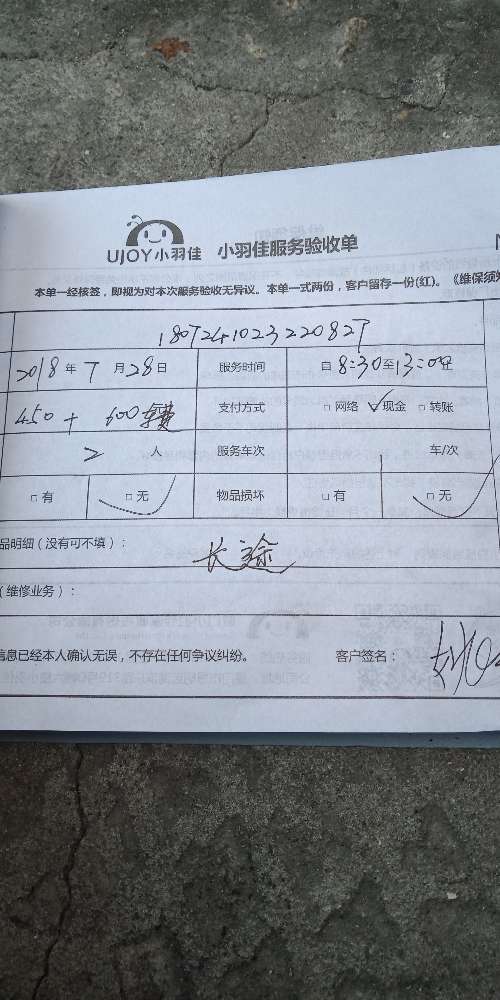 UJOY小羽佳 小羽佳服务验收单
本单一经核签，即视为对本次服务验收无异议。本单一式两份，客户留存一份(红)。《维保须知
180724102322082T
2018年7月28日 服务时间 自8:30至13:00
450+ 600车费 支付方式 □网络 ☑现金 □转账
2人 服务车次 1车/次
□有 □无 物品损坏 □有 □无
品明细（没有可不填）：
长途
（维修业务）：
信息已经本人确认无误，不存在任何争议纠纷。 客户签名：